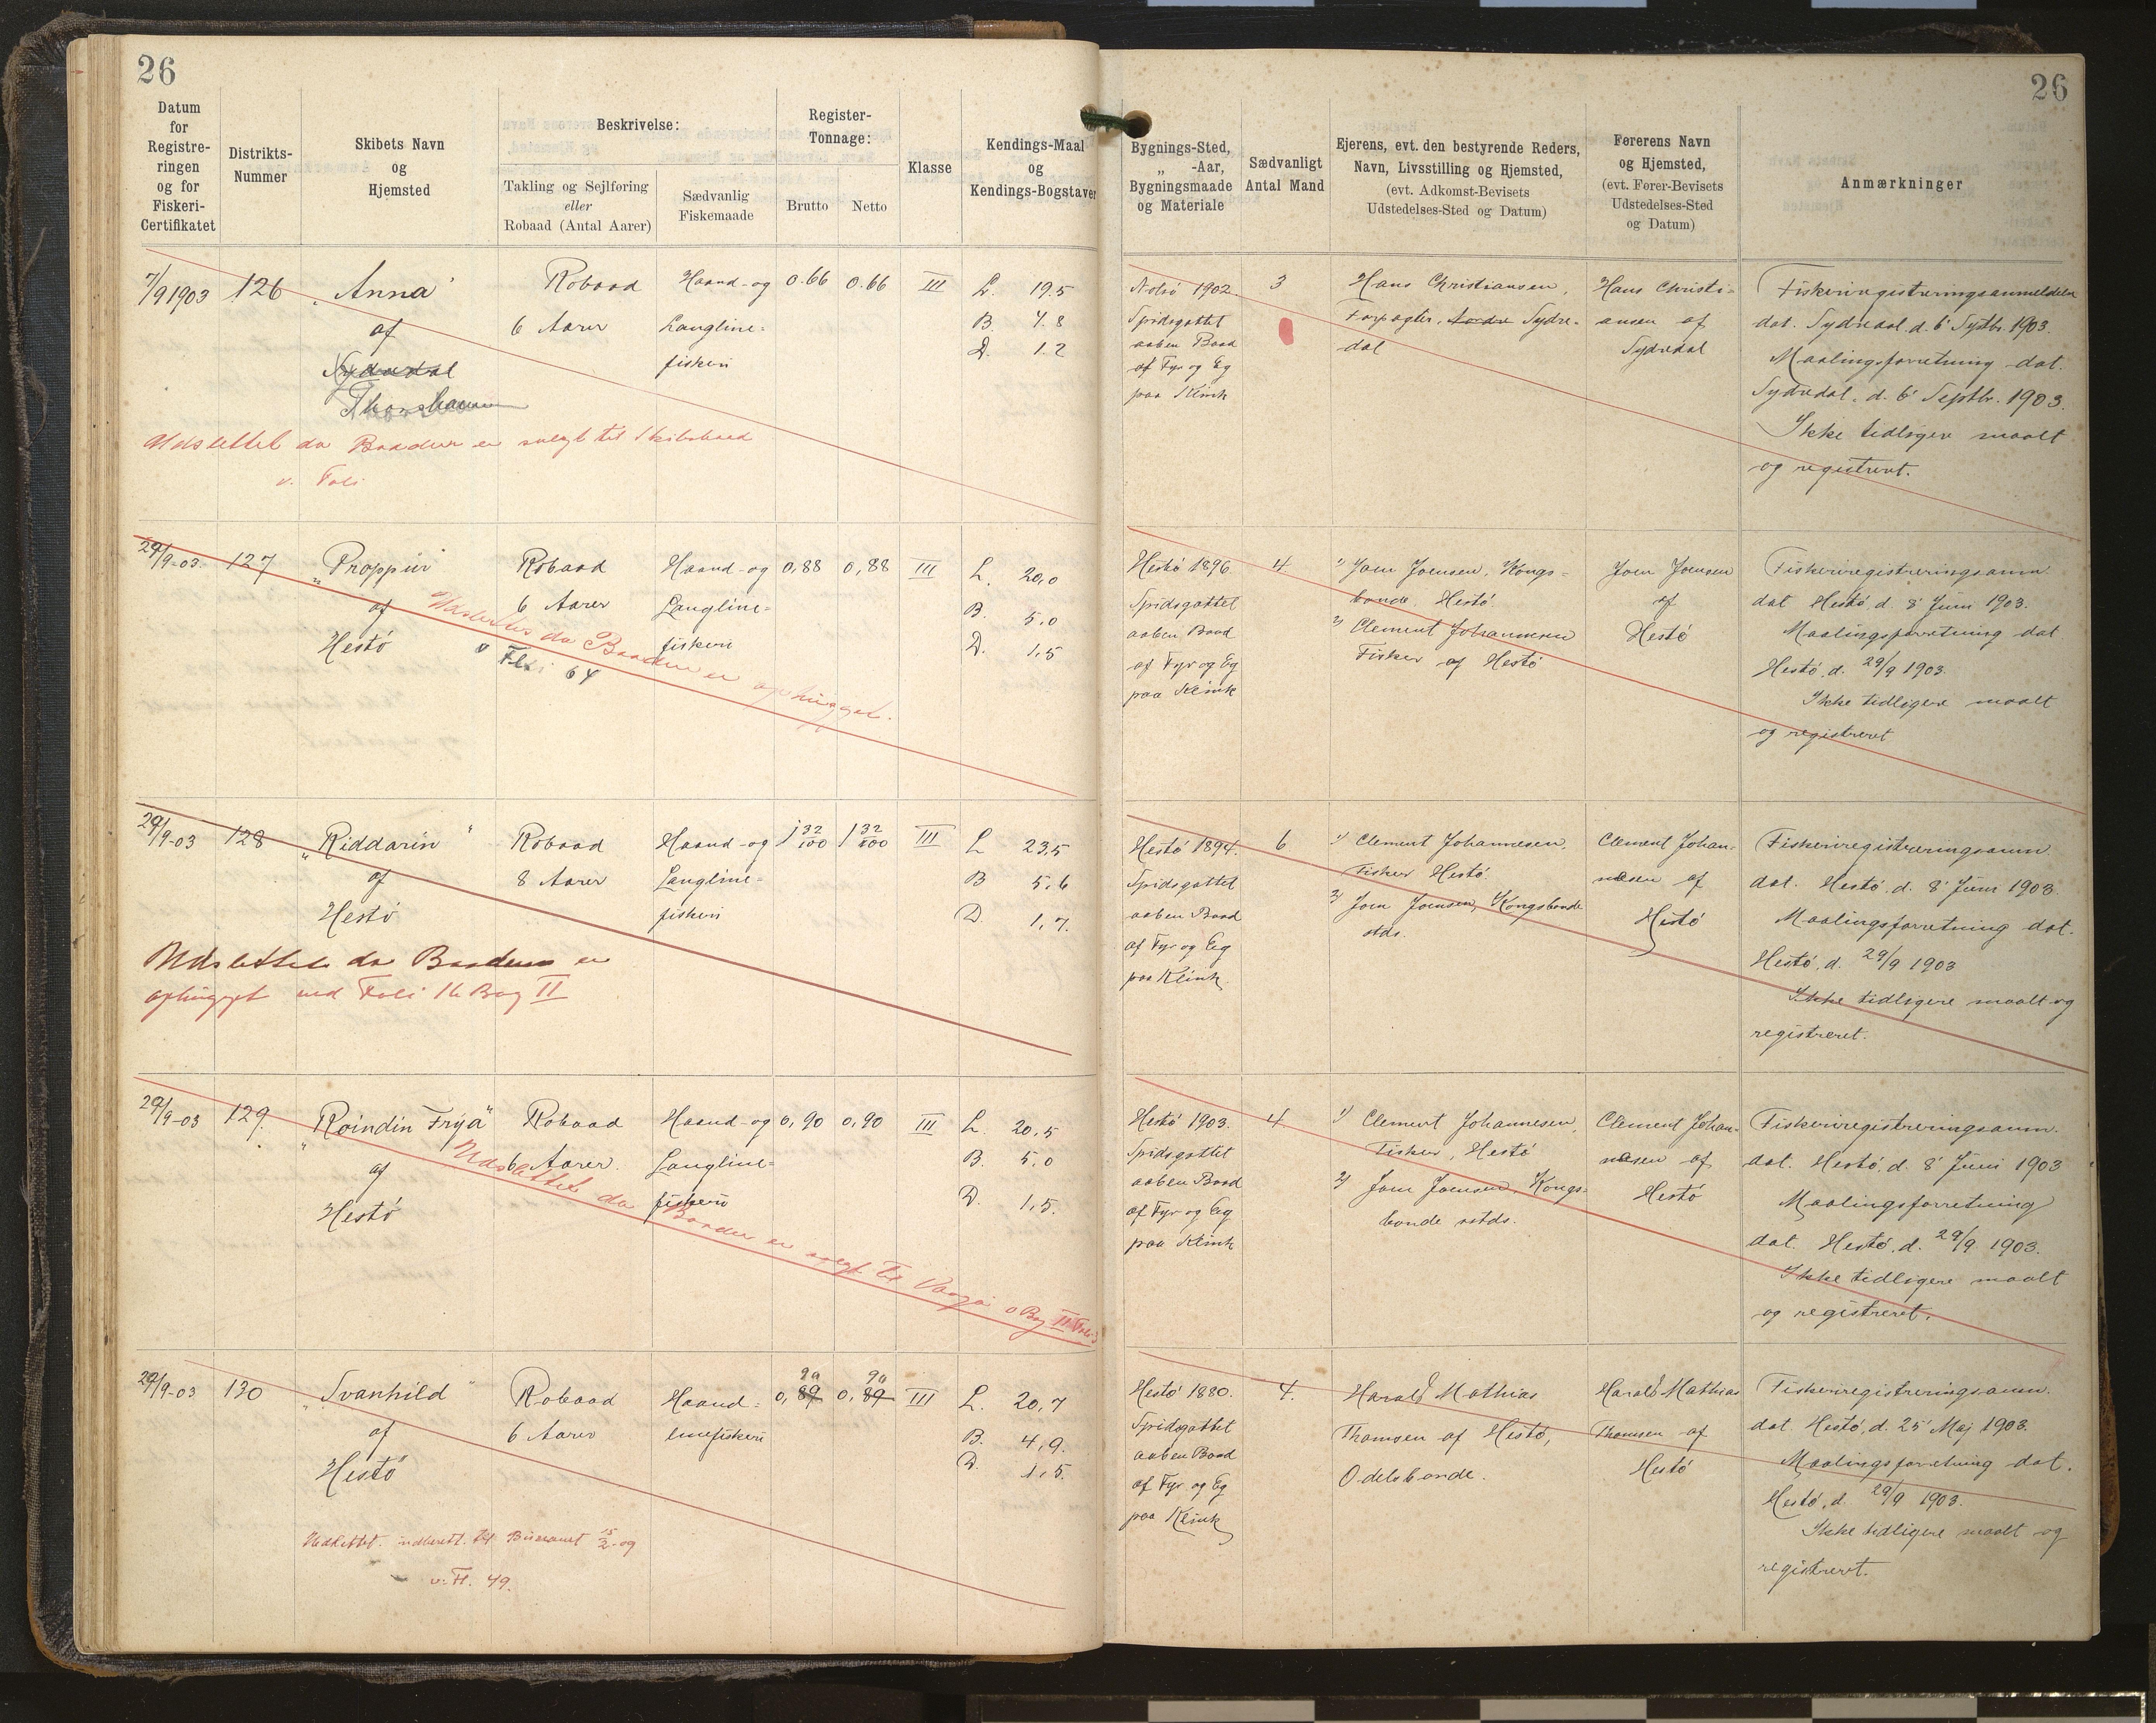 26
Datum for Registreringen og for Fiskeri-Certifikatet
Distrikts-Nummer
Skibets Navn og Hjemsted
Beskrivelse:
Takling og Sejlføring eller Robaad (Antal Aarer)
Sædvanlig Fiskemaade
Register-Tonnage:
Brutto
Netto
Klasse
Kendings-Maal og Kendings-Bogstaver
7/9 1903 126 „Anna" Robaad Haand- og 0.66 0.66 III L. 19.5
af 6 Aarer Langline= B. 4.8
Sydradal fiskeri D. 1.2
Thorshavn
Udslettet da Baaden er solgt til Skibsbaad
v. Foli
29/9-03. 127 „Proppur" Robaad Haand- og 0,88 0,88 III L. 20,0
af 6 Aarer Langline= B. 5,0
Hestö fiskeri D. 1,5
Udslettes da Baaden er ophugget.
v Foli 64
29/9-03 128 „Riddarin" Robaad Haand- og 1 32/100 1 32/100 III L 23,5
af 8 Aarer Langline= B 5,6
Hestö fiskeri D. 1,7.
Udslettet da Baaden er
ophugget ved Foli 16 Bog II
29/9-03 129. „Roindin Frýa" Robaad Haand- og 0,90 0,90 III L. 20,5
af 6 Aarer. Langline= B. 5,0
Hestö fiskeri D. 1,5.
Udslettet da Baaden er solgt til Vaagø v Bog II Foli
29/9-03 130 „Svanhild" Robaad Haand= 0,89 90 0,89 90 III L. 20,7
af 6 Aarer linefiskeri B. 4,9.
Hestö D. 1,5.
Udslettet. indberett. til
v. Fl. 49.
26
Bygnings-Sted, „ -Aar, Bygningsmaade og Materiale
Sædvanligt Antal Mand
Ejerens, evt. den bestyrende Reders, Navn, Livsstilling og Hjemsted, (evt. Adkomst-Bevisets Udstedelses-Sted og Datum)
Førerens Navn og Hjemsted, (evt. Fører-Bevisets Udstedelses-Sted og Datum)
Anmærkninger
Nolsö 1902. 3 Hans Christiansen, Hans Christi= Fiskeriregistreringsanmeldelse
Spidsgattet Forpagter, Sydre= ansen af dat. Sydradal d. 6' Septbr. 1903.
aaben Baad dal Sydredal Maalingsforretning dat.
af Fyr og Eg Sydredal. d. 6' Septbr. 1903.
paa Klink Ikke tidligere maalt
og registreret.
Hestö 1896. 4 1) Joen Joensen, Kongs= Joen Joensen Fiskeriregistreringsanm.
Spidsgattet bonde, Hestö. af dat Hestö, d. 8' Juni 1903.
aaben Baad 2) Clement Johannesen Hestö Maalingsforretning dat
af Fyr og Eg Fisker af Hestö Hestö, d. 29/9 1903.
paa Klink Ikke tidligere maalt
og registreret
Hestö 1894. 6 1) Clement Johannesen, Clement Johan- Fiskeriregistreringsanm.
Spidsgattet Fisker Hestö. nesen af dat. Hestö, d. 8' Juni 1903.
aaben Baad 2) Joen Joensen, Kongsbonde Hestö Maalingsforretning dat.
af Fyr og Eg stds. Hestö, d. 29/9 1903
paa Klink Ikke tidligere maalt og
registreret.
Hestö 1903. 4 1) Clement Johannesen, Clement Johan- Fiskeriregistreringsanm.
Spidsgattet Fisker, Hestö nesen af dat. Hestö, d. 8' Juni 1903
aaben Baad 2) Joen Joensen, Kongs= Hestö Maalingsforretning
af Fyr og Eg bonde sstds. dat. Hestö, d. 29/9 1903.
paa Klink Ikke tidligere maalt
og registreret.
Hestö 1880. 4. Harald Mathias Harald Mathias Fiskeriregistreringsanm.
Spidsgattet Thomsen af Hestö, Thomsen af dat. Hestö, d. 25' Maj 1903.
aaben Baad Odelsbonde. Hestö Maalingsforretning dat.
af Fyr og Eg Hestö, d. 29/9 1903.
paa Klink Ikke tidligere maalt og
registreret.